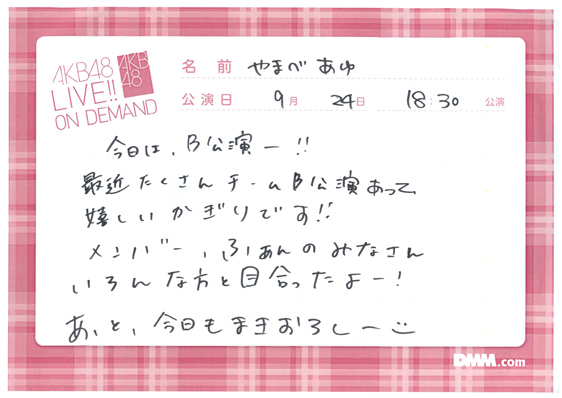 AKB48
LIVE!!
ON DEMAND
AKB
48
名前 やまべあゆ
公演日 9月 24日 18:30 公演
今日は、B公演ー!!
最近たくさんチームB公演あって、
嬉しいかぎりです!!
メンバー、ふぁんのみなさん
いろんな方と目合ったよー!
あ、と、今日もまきおろしー
DMM.com